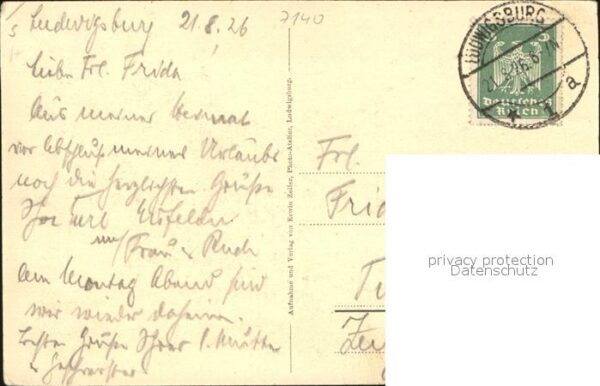 Ludwigsburg 21.8.26
7140
Liebe Frl. Frida
Aus meiner Heimat
vor Abschluß meines Urlaubs
noch die herzlichsten Grüße
Ihr Karl
und Frau u.
Am Montag Abend sind
wir wieder daheim.
Besten Grüße Ihrer l. Mutter
u. Geschwister.
Aufnahme und Verlag von Erwin Zeller, Photo-Atelier, Ludwigsburg.
LUDWIGSBURG
a
5
Deutsches
Reich
Frl.
Frid
privacy protection
Datenschutz